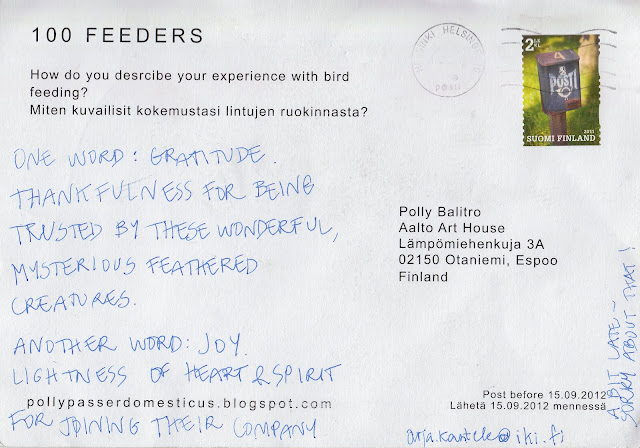 100 FEEDERS
How do you desrcibe your experience with bird
feeding?
Miten kuvailisit kokemustasi lintujen ruokinnasta?
ONE WORD: GRATITUDE.
THANKFULNESS FOR BEING
TRUSTED BY THESE WONDERFUL,
MYSTERIOUS FEATHERED
CREATURES.
ANOTHER WORD: JOY.
LIGHTNESS OF HEART & SPIRIT
pollypasserdomesticus.blogspot.com
FOR JOINING THEIR COMPANY
HELSINKI HELSINGFORS
posti
2 LK KL
POSTI
2011
SUOMI FINLAND
Polly Balitro
Aalto Art House
Lämpömiehenkuja 3A
02150 Otaniemi, Espoo
Finland
Post before 15.09.2012
Lähetä 15.09.2012 mennessä
arja.kastele@iki.fi
A BIT LATE –
SORRY ABOUT THAT!